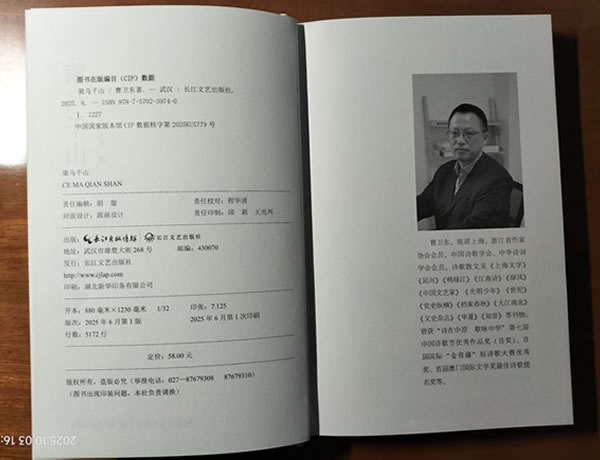 图书在版编目（CIP）数据
策马千山 / 曹卫东著. — 武汉：长江文艺出版社，
2025. 6. — ISBN 978-7-5702-3974-0
Ⅰ. I227
中国国家版本馆 CIP 数据核字第 2025GU5779 号
策马千山
CE MA QIAN SHAN
责任编辑：胡 璇
责任校对：程华清
封面设计：源画设计
责任印制：邱 莉 王光兴
出版：长江出版传媒 长江文艺出版社
地址：武汉市雄楚大街 268 号
邮编：430070
发行：长江文艺出版社
http://www.cjlap.com
印刷：湖北新华印务有限公司
开本：880 毫米×1230 毫米 1/32
印张：7.125
版次：2025 年 6 月第 1 版
2025 年 6 月第 1 次印刷
行数：5172 行
定价：58.00 元
版权所有，盗版必究（举报电话：027—87679308 87679310）
（图书出现印装问题，本社负责调换）
曹卫东，现居上海，浙江省作家
协会会员、中国诗歌学会、中华诗词
学会会员。诗歌散文见《上海文学》
《延河》《鸭绿江》《江南诗》《绿风》
《中国文艺家》《光明少年》《世纪》
《党史纵横》《档案春秋》《大江南北》
《文史杂志》《华夏》《知音》等刊物。
曾获“诗在中原 歌咏中华”第七届
中国诗歌节优秀作品奖（首奖）、首
届国际“金青藤”短诗歌大赛优秀
奖、首届澳门国际文学奖最佳诗歌提
名奖等。
2025.10.03 16: